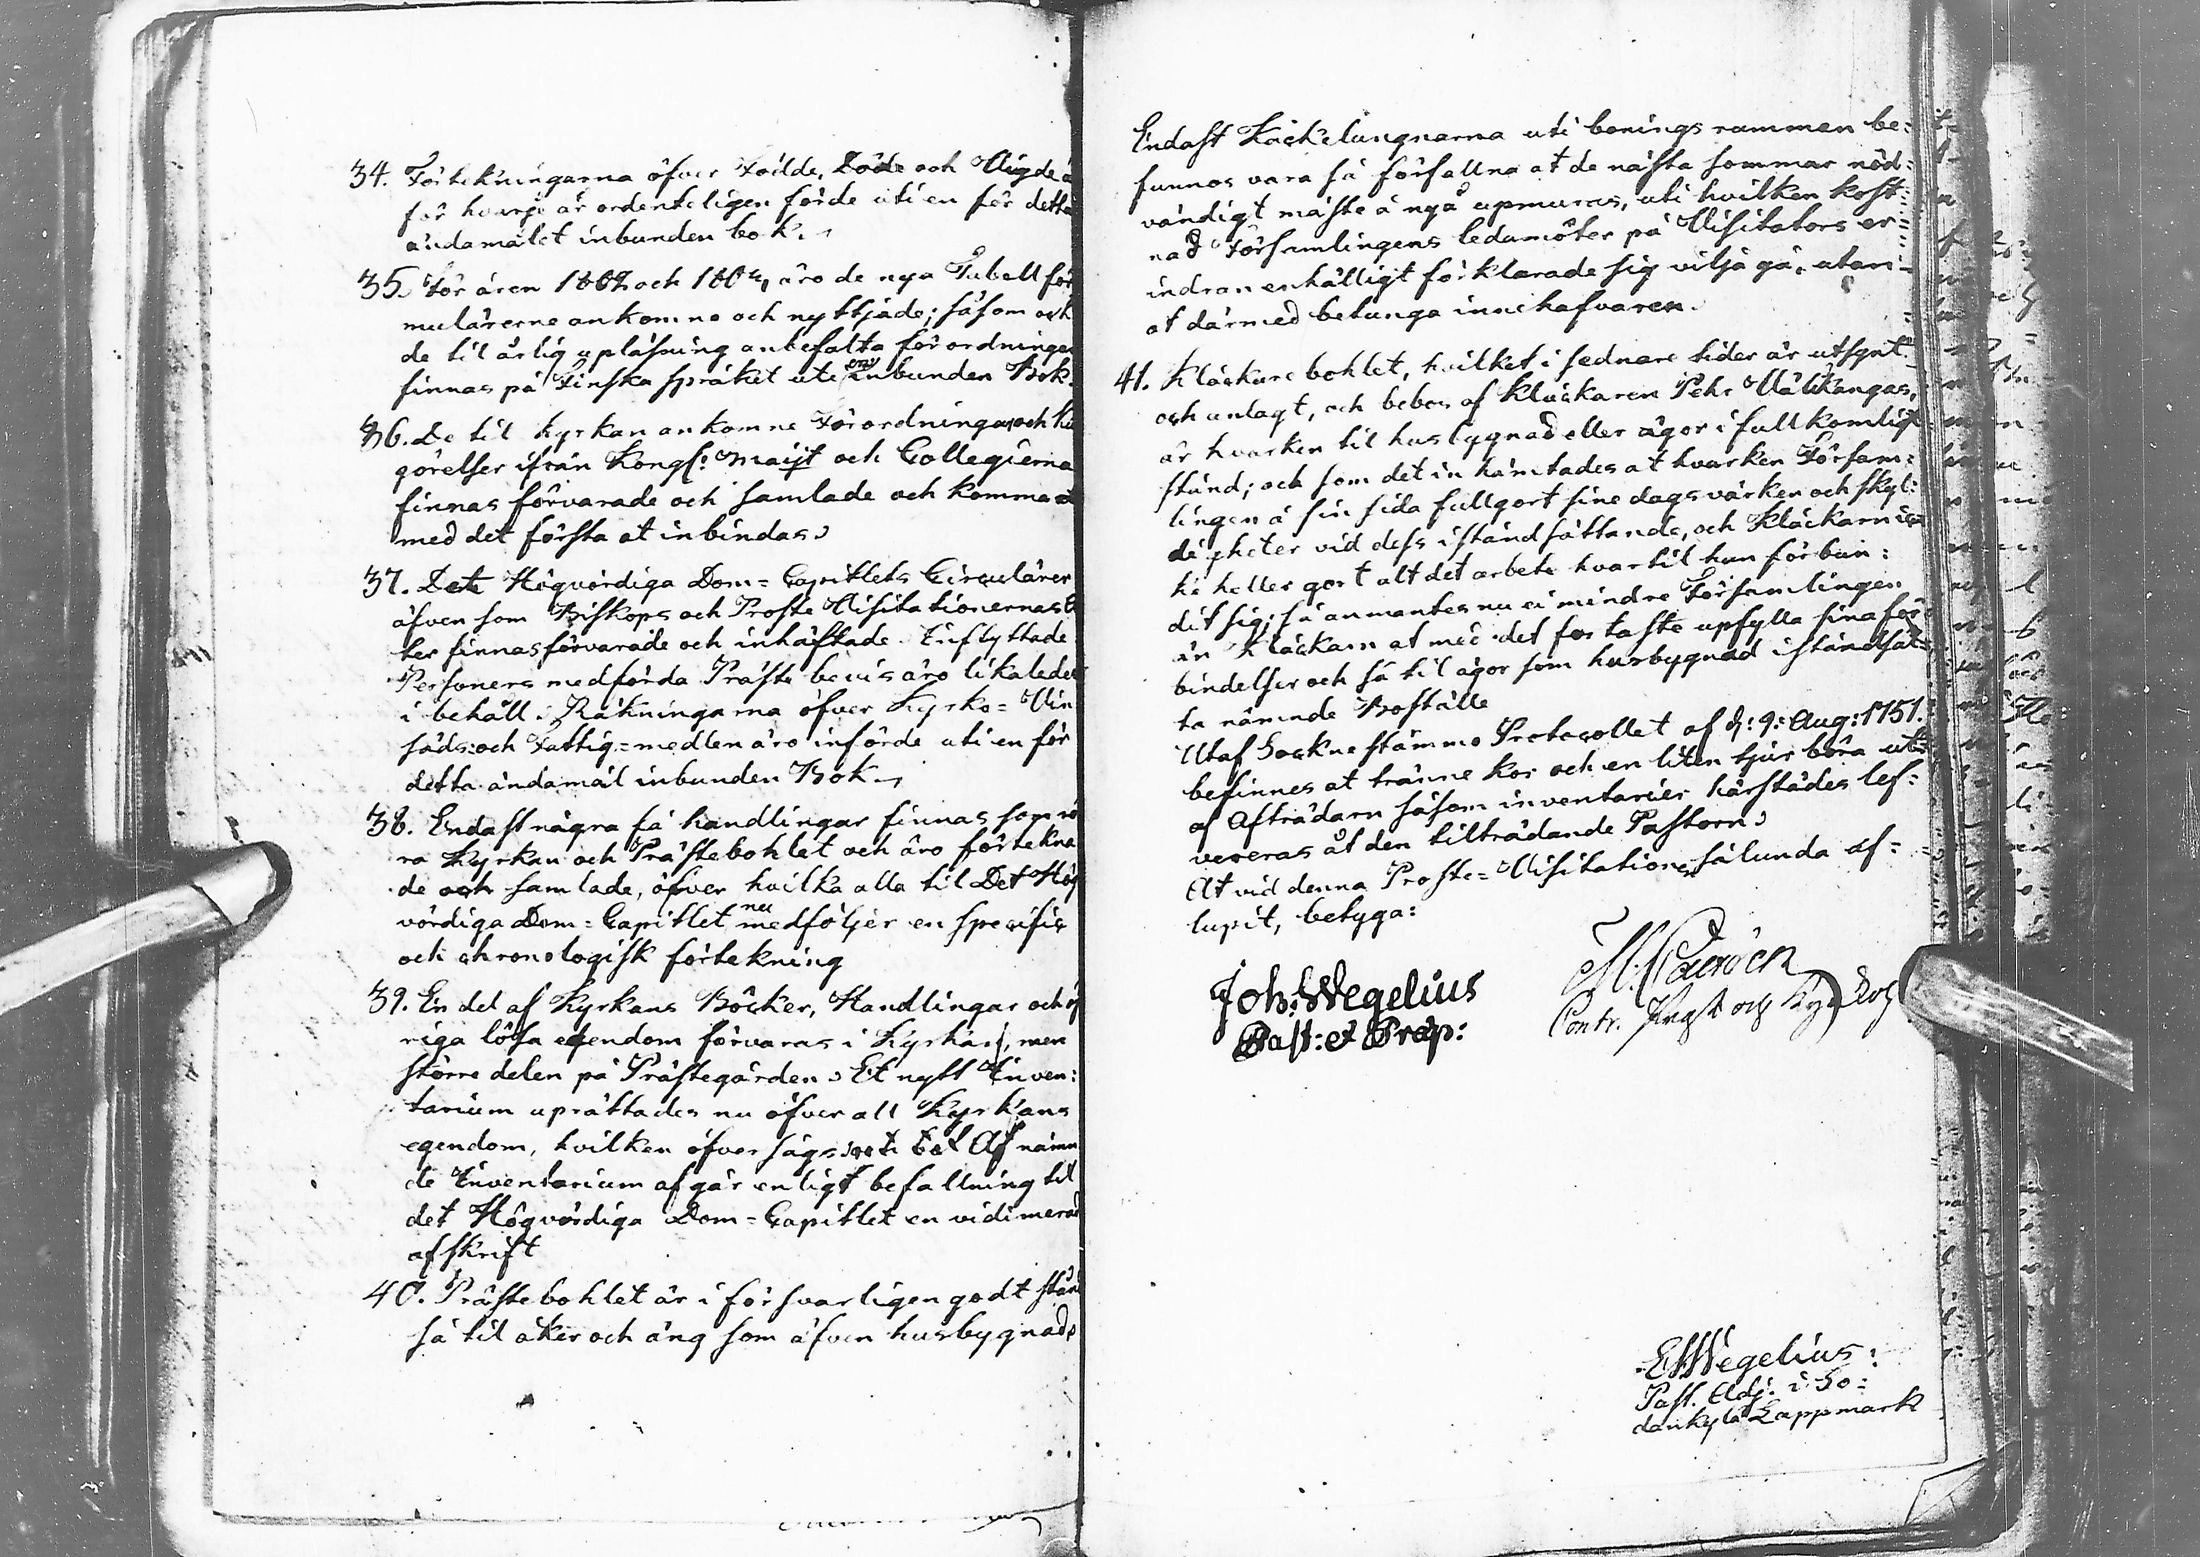 34. Förtekningarna öfver Födde, Döde och Vigde ä
för hvarje år ordenteligen förde uti en för detta
ändamålet inbunden bok.
35. För åren 1802 och äro de nya Tabell for
mulärerne ankomne och nyttjade; såsom och
de til årlig upläsning anbefalta förordningar
finnas på Finska språket uti en inbunden Bok.
36. De til kyrkan ankomne Förordningar och Ku
görelser ifrån Kongl: Maijt och Collegierna
finnas förvarade och samlade och komma at
med det första at inbindas
37. Det Högvördiga Dom=Capitlets Circulärer
äfven som Biskops och Proste Visitationernas
ter finnas förvarade och inhäftade. Inflyttade
Personers medförda Präste bevis äro likaledes
i behåll. Räkningarna öfver Kyrko= Vin
säds: och Fattig=medlen äro införde uti en för
detta ändamål inbunden Bok.
38. Endast några få handlingar finnas som rö
ra Kyrkan och Prästebohlet och äro förtekna
de och samlade, öfver hvilka alla til Det Hög
vördiga Dom=Capitlet nu medföljer en specifiq
och chronologisk förtekning
39. En del af Kyrkans Böcker, Handlingar och öf
riga lösa egendom förvaras i Kyrkan, men
större delen på Prästegården. Et nytt Inven:
tarium uprättades nu öfver all Kyrkans
egendom, hvilken öfversågs Af nämn
de Inventarium afgår enligt befallning til
det Högvördiga Dom=Capitlet en vidimerad
afskrift
40. Prästebohlet är i försvarligen godt stånd
så til åker och äng som äfven husbygnad,
Endast Kackelungnarna uti bonings rummen be:
funnos vara så förfallna at de nästa sommar nöd:
vändigt måste å nyå upmuras, uti hvilken kost:
nad Församlingens ledamöter på Visitators er=
indran enhälligt förklarade sig vilja gå, utan
at därmed betunga innehafvaren.
41. Kläckare bohlet, hvilket i sednare tider är utsynt
och anlagt, och bebos af Kläckaren Pehr Välikangas,
är hvarken til husbygnad eller ägor i fullkomligt
stånd; och som det inhämtades at hvarken Försam:
lingen å sin sida fullgort sine dagsvärken och skyl:
digheter vid dess iståndsättande, och Kläckarn ic
ke heller gort alt det arbete hvartil han förbun:
dit sig; så anmantes nu ei mindre Församlingen
än Kläckarn at med det fortaste upfylla sina för
bindelser och så til ägor som husbygnad iståndsät:
ta nämnde Boställe
Utaf Sockne stämmo Protocollet af d: 9: Aug: 1751.
befinnes at tränne kor och en liten tjur böra ut
af Afträdarn såsom inventarier härstädes lef:
vereras åt den tilträdande Pastorn
At vid denna Proste=Visitation sålunda af=
lupit, betyga:
Joh: Wegelius
Past: et Præp:
Contr. Prost och Kyrkoh
E Wegelius:
Past. Adj: i So:
dankylä Lappmark